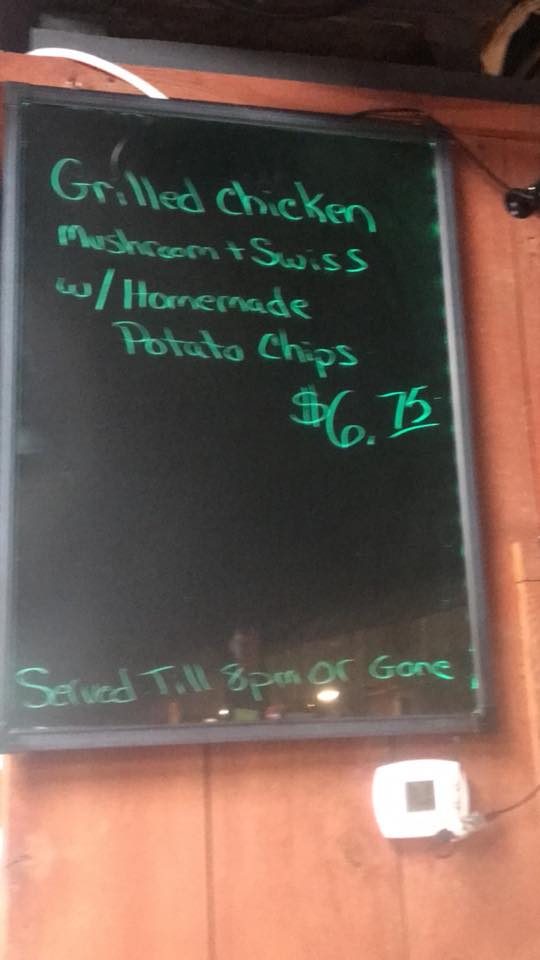 Grilled Chicken
Mushroom + Swiss
w/ Homemade
Potato Chips
$6.75
Served Till 8pm Or Gone